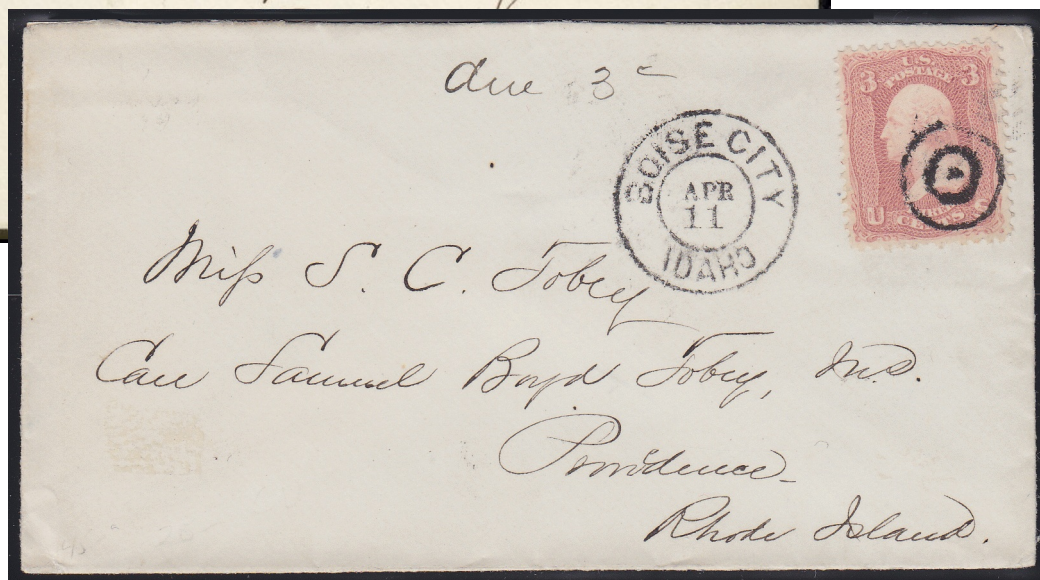 due 3c
U.S.
POSTAGE
3 3
U CENTS. S
BOISE CITY
APR
11
IDAHO
Miss S. C. Tobey
Care Samuel Boyd Tobey, M.D.
Providence
Rhode Island.